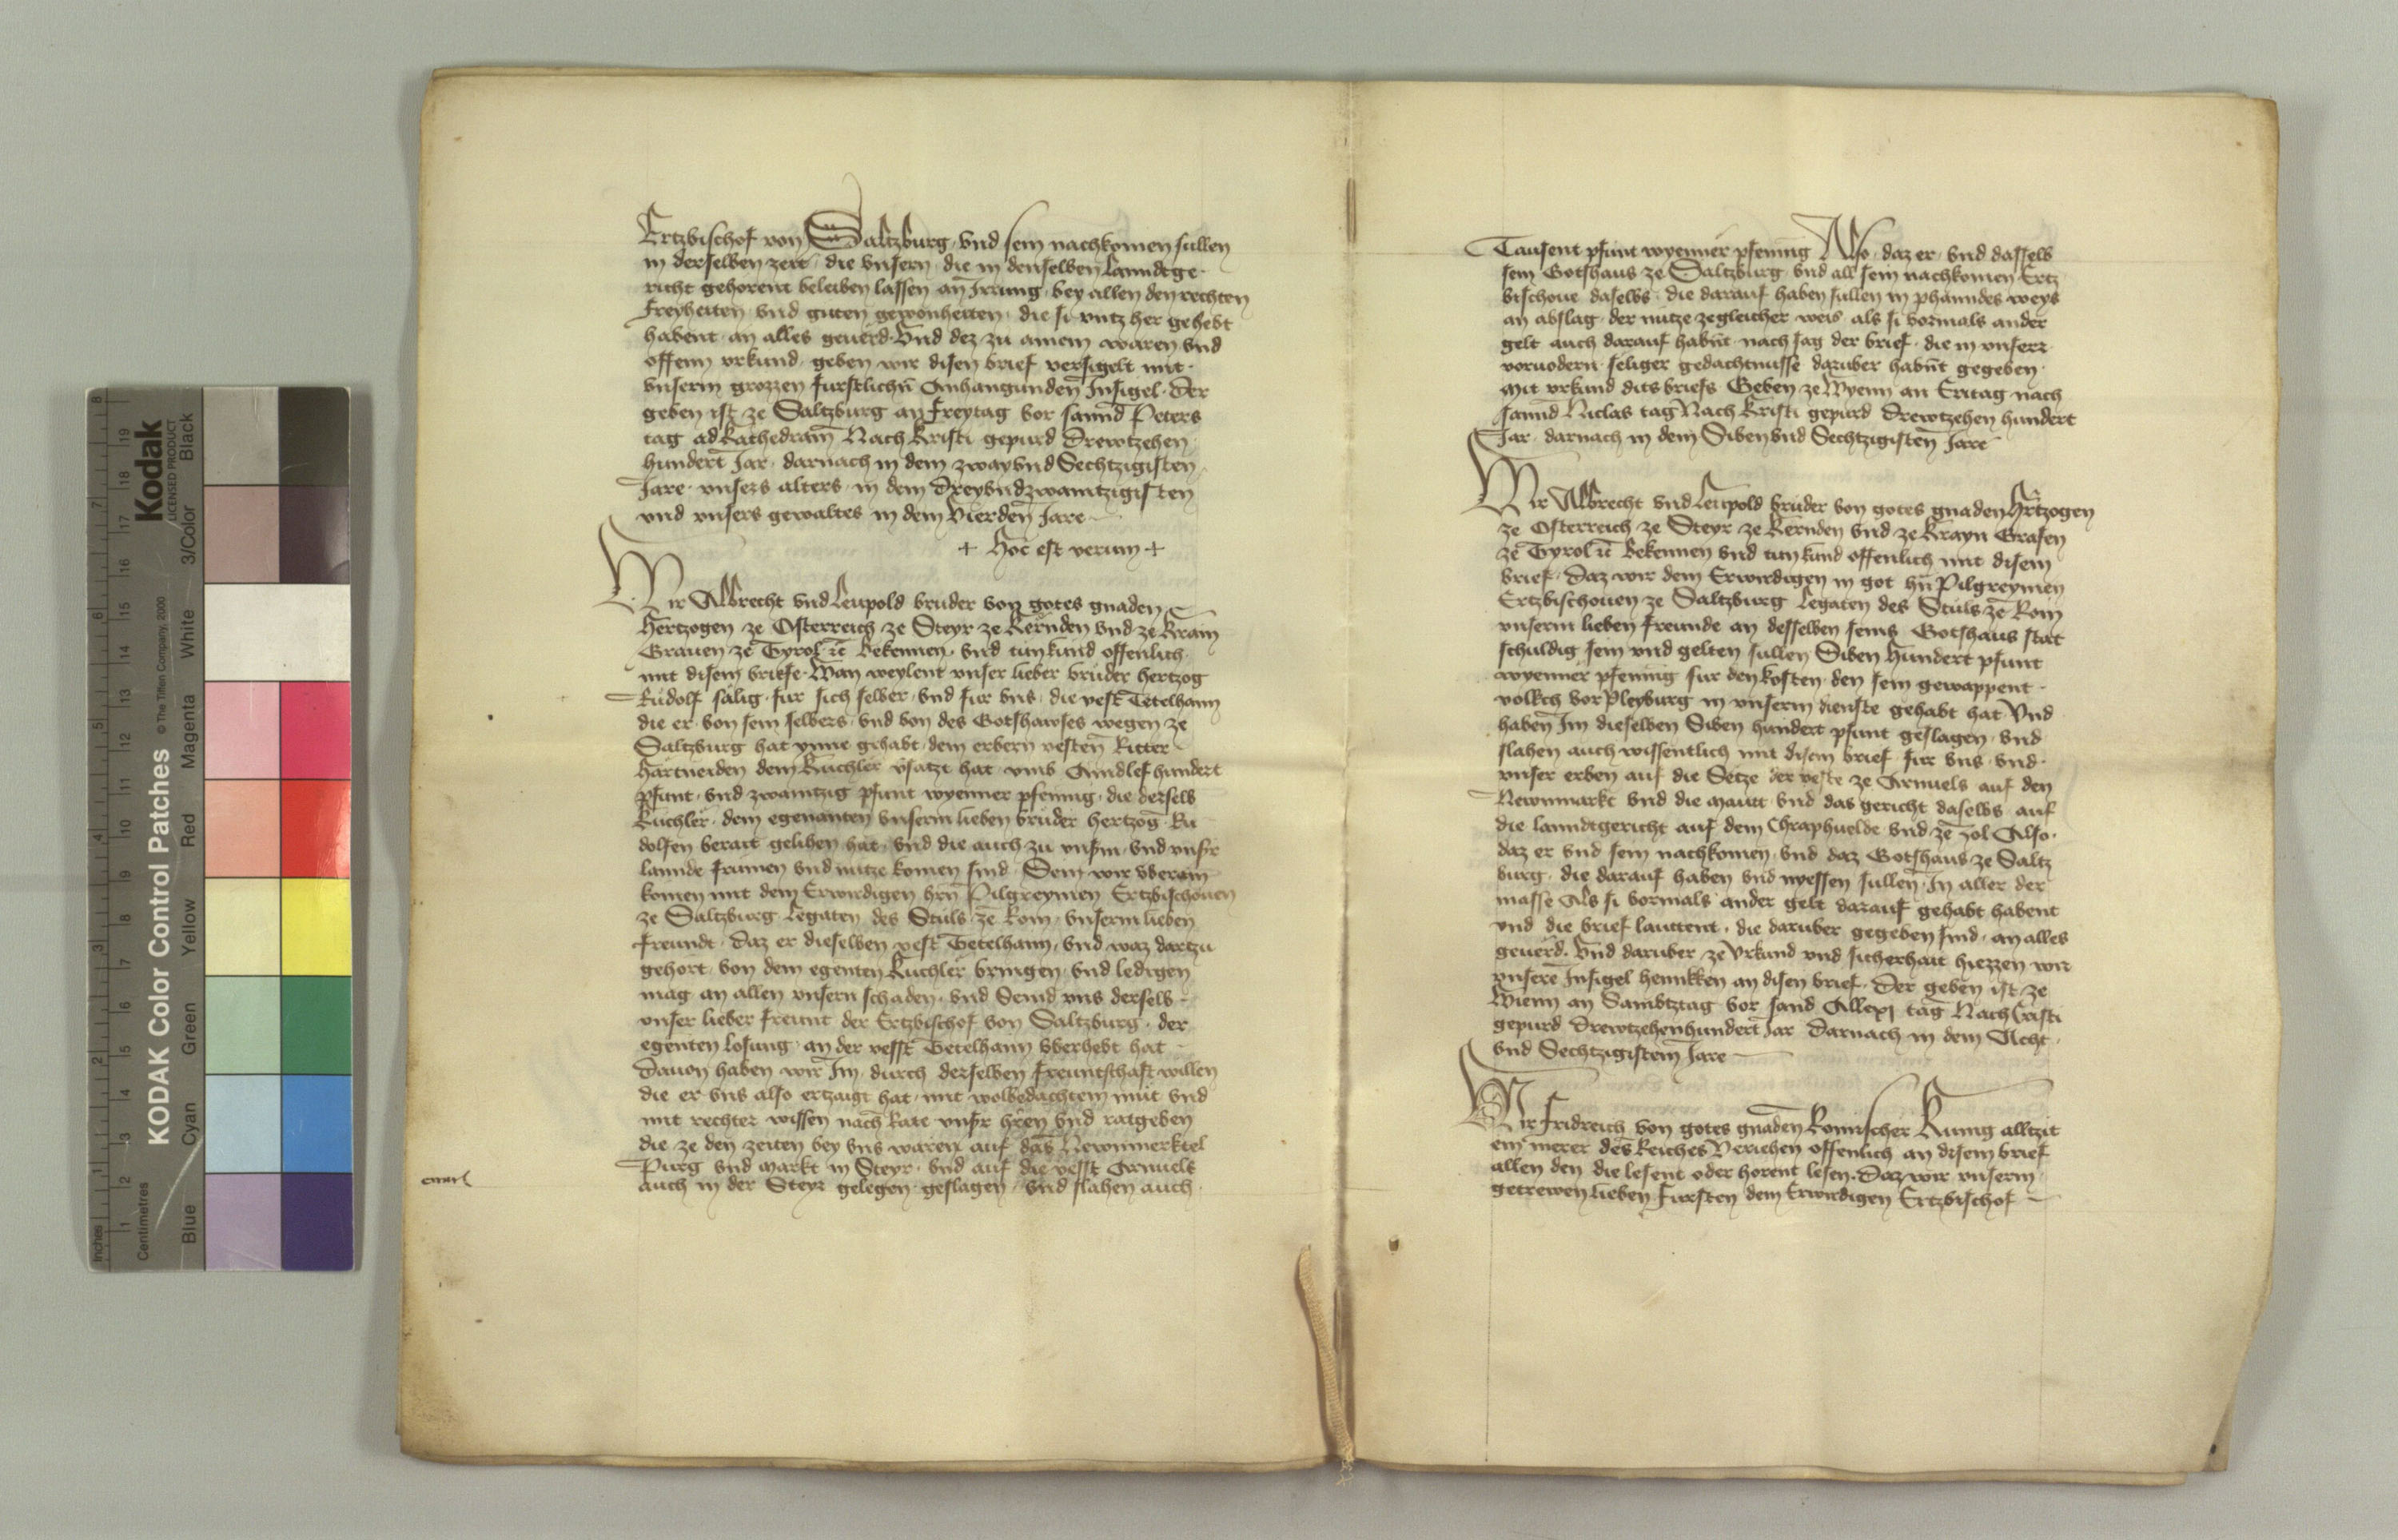 Ertzbischof von Saltzburg, vnd sein nachkomen sullen
in derselben zeit, die vnsern, die in denselben Lanndtge-
richt gehorent beleiben lassen an Irrung, bey allen den rechten
freyheiten, vnd guten gewonheiten, die si vntz her gehebt
habent, an alles geuerd. Vnd dez zu ainem waren vnd
offenn vrkund, geben wir disen brief versigelt mit
vnserm grozzen furstlichn̄ Anhangunden Insigel. Der
geben ist ze Saltzburg an freytag vor sannd Peters
tag ad kathedram Nach Kristi gepurd Drewtzehen
hundert Jar, darnach in dem zway vnd Sechtzigisten
Jare. vnsers alters, in dem Dreyvndzwaintzigisten
vnd vnsers gewaltes in dem Vierden Jare
+ hoc est verum +
Wir Albrecht vnd Leupold bruder von gotes gnaden
Hertzogen ze Osterreich, ze Steyr ze Kernden vnd ze Krain
Grauen ze Tyrol ꝛc̄ Bekennen, vnd tun kund offenlich
mit disem briefe. Wan weylent vnser lieber bruder hertzog
Rudolf salig, fur sich selber, vnd fur vns, die vest Tetelhann
die er von sein selbers, vnd von des Gotshawses wegen ze
Saltzburg hat ynne gehabt, dem erbern vesten Ritter
hartneiden dem Kuchler v̄satzt hat, vmb Aindlef hundert
pfunt, vnd zwaintzig pfunt wyenner pfennig, die derselb
Kuchler, dem egenanten vnserm lieben bruder hertzog Ru
dolfen berait gelihen hat, vnd die auch zu vnsm̄, vnd vnsr̄
lannde frumen vnd nutze komen sind. Sein wir vberain
komen mit dem Erwirdigen hrn̄ Pilgreymen Ertzbischouen
ze Saltzburg Legaten des Stuls ze Rom, vnserm lieben
freundt, daz er dieselben vest Tetelhann, vnd waz dartzu
gehort, von dem egenten Kuchler bringen, vnd ledigen
mag an allen vnsern schaden, vnd Seind vns derselb
vnser lieber freunt der Ertzbischof von Saltzburg, der
egenten losung, an der vesst Tetelhann vberhebt hat
Dauon haben wir Im, durch derselben freuntschaft willen
die er vns also ertzaigt hat, mit wolbedachtem mut vnd
mit rechter wissen nach Rate vnsr̄ hr̄en vnd ratgeben
die ze den zeiten bey vns waren auf das Newnmerktel
Purg vnd markt in Steyr, vnd auf die vesst Arnuels
auch in der Steyr gelegen, geslagen, vnd slahen auch
Tausent pfunt wyenner pfennig Also, daz er, vnd dasselb
sein Gotshaus ze Saltzburg vnd all sein nachkomen Ertz
bischoue daselbs, die darauf haben sullen in phanndes weys
an abslag, der nutze zegleicher weis, als si vormals ander
gelt auch darauf habn̄t nach sag der brief, die in vnserr
voruodern, seliger gedachtnusse daruber habn̄t gegeben.
Mit vrkund dits briefs Geben ze Wyenn an Eritag nach
sannd Niclas tag Nach Kristi gepurd Drewtzehen hundert
Jar, darnach in dem Siben vnd Sechtzigisten Jare
Wir Albrecht vnd Leupold bruder von gotes gnaden Hrtzogen
ze Osterreich ze Steyr ze Kernden vnd ze Krayn Grafen
ze Tyrol ꝛc̄ Bekennen vnd tun kund offenlich mit disem
brief. Daz wir dem Erwirdigen in got hn̄ Pilgreymen
Ertzbischouen ze Saltzburg Legaten des Stuls ze Rom
vnserm lieben freunde an desselben seins Gotshaus stat
schuldig sein vnd gelten sullen Siben hundert pfunt
wyenner pfennig fur den kosten, den sein gewappent
volkch vor Pleyburg in vnserm dienste gehabt hat Vnd
haben Im dieselben Siben hundert pfunt geslagen, vnd
slahen auch wissentlich mit disem brief fur vns, vnd
vnser erben auf die Setze der veste ze Arnuels auf den
Newnmarkt vnd die mautt, vnd das gericht daselbs auf
die lanndtgericht auf dem Chraphuelde vnd ze zol Also,
daz er vnd sein nachkomen, vnd daz Gotshaus ze Saltz
burg, die darauf haben vnd nyessen sullen, In aller der
masse Als si vormals ander gelt darauf gehabt habent
vnd die brief lauttent, die daruber gegeben sind, an alles
geuerd. Vnd daruber ze Vrkund vnd sicherhait hiezzen wir
vnsere Insigel hennkken an disen brief. Der geben ist ze
Wienn an Sambtztag vor sand Allexj tag Nach Cristi
gepurd Drewtzehenhundert Jar Darnach in dem Acht
vnd Sechtzigistem Jare
Wir Fridreich von gotes gnaden Romischer Kunig alltzit
ein merer des Reiches Veriehen offenlich an disem brief
allen den die lesent oder horent lesen. Daz wir vnserm
getrewen lieben Fursten dem Erwirdigen Ertzbischof
KODAK Color Control Patches
Kodak
LICENSED PRODUCT
© The Tiffen Company, 2000
Inches
Centimetres
Blue Cyan Green Yellow Red Magenta White 3/Color Black